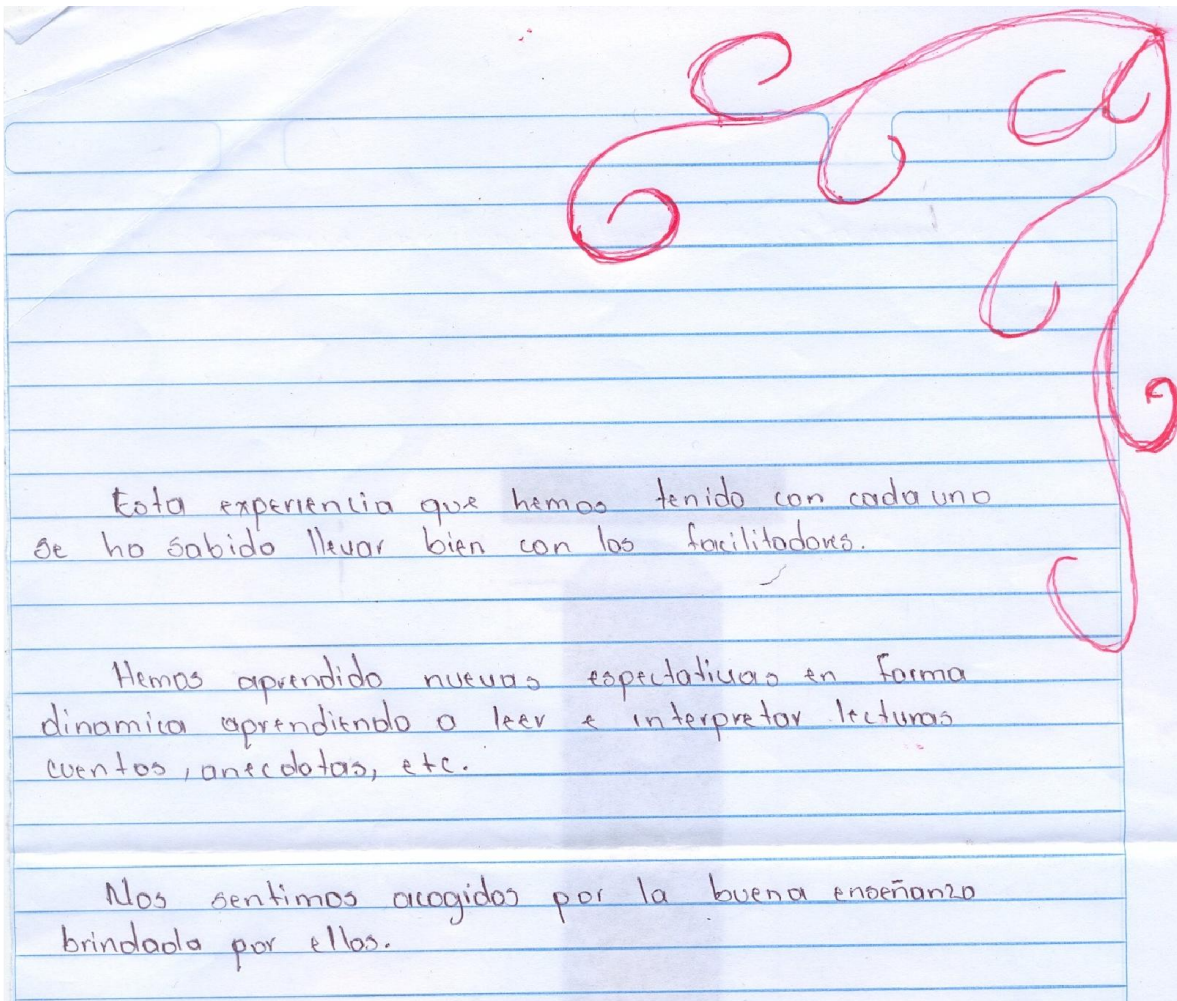 Esta experiencia que hemos tenido con cada uno
se ha sabido llevar bien con los facilitadores.
Hemos aprendido nuevas espectativas en forma
dinamica aprendiendo a leer e interpretar lecturas
cuentos, anecdotas, etc.
Nos sentimos acogidos por la buena enseñanza
brindada por ellos.